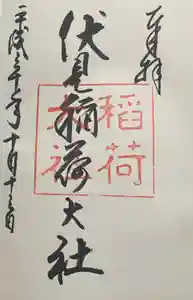 奉拝
伏見稲荷大社
稲荷
平成三十年十月十三日